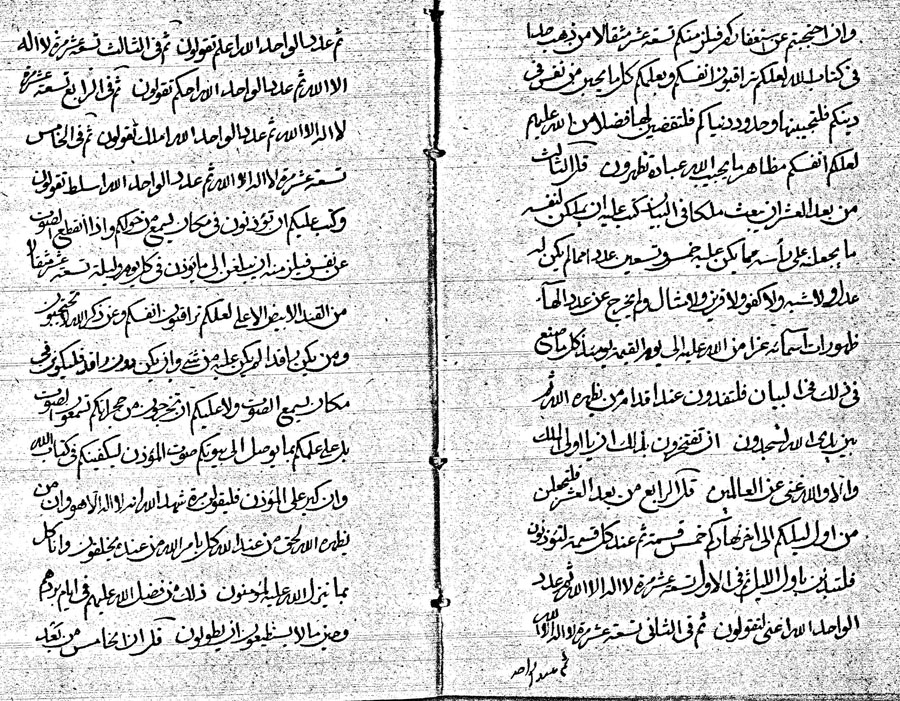 وان احتجبتم عن استغفار ربكم فيلزمنكم تسعة عشر مثقالا من ذهب حلنا
في كتاب الله لعلكم تراقبون انفسكم ويعلمكم كل ما يحبن من نفس في
دينكم فلتجيبنها وحدود دنياكم فلتقضين لها فضلا من الله عليهم
لعلكم انفسكم مظاهر ما يجيب الله عباده تظهرون قل الثالث
من بعد العشر ان يبعث ملكا في البيان كتب عليه ان يملكن لنفسه
ما يجعله على رأسه مما يكن عليه خمس وتسعين عددا مما لم يكن له
عدل ولا شبه ولا كفو ولا قرين ولا مثال ولم يخرج عن عدد الهاء
ظهورات اسمائه عزا من الله عليه الى يوم القيمة يومئذ كل ما صنع
في ذلك فخرا لبيان فلتفدون عند اقدام من يظهره الله ثم
بين يدي الله لتسجدون ان تفتخرون بذلك ان يا اولى الملك
وانا والله غني عن العالمين قل الرابع من بعد العشر فلتجعلن
من اول ليلكم الى اخر نهاركم خمس قسمة ثم عند كل قسمة لتؤذنون
فلتبدئن باول الليل ثم في الاول تسعة عشر مرة لا اله الا الله ثم عدد
الواحد الله اغنى لتقولون ثم في الثاني تسعة عشر مرة لا اله الا الله
ثم عدد الواحد
ثم عدد الواحد الله اعلم تقولون ثم في الثالث تسعة عشر مرة لا اله
الا الله ثم عدد الواحد الله احكم تقولون ثم في الرابع تسعة عشر مرة
لا اله الا الله ثم عدد الواحد الله املك تقولون ثم في الخامس
تسعة عشر مرة لا اله الا الله ثم عدد الواحد الله اسلط تقولون
وكتب عليكم ان تؤذنون في مكان يسمع من حولكم واذا انقطع الصوت
عن نفس فيلزمنه ان يبلغن الى ما يؤذن في كل يوم وليلة تسعة عشر مثقالا
من القند الابيض الاعلى لعلكم تراقبون انفسكم وعن ذكر الله لا تحتجبون
ومن يكن راقدا لم يكن عليه من شيء وان يكن دون راقد فليكونن في
مكان يسمع الصوت ولا عليكم ان تخرجون من حجراتكم تسمعوا الصوت
بل على علمكم بما يوصل الى بيوتكم صوت المؤذن ليكفينكم في كتاب الله
وان كبر على المؤذن فليقولن مرة شهد الله انه لا اله الا هو وان من
يظهره الله لحق من عند الله كل بامر الله من عنده يخلقون وانا كل
بما ينزل الله عليه لمؤمنون ذلك من فضل الله عليهم في ايام بردهم
وحين ما لا يستطيعون ان يطولون قل ان الخامس من بعد